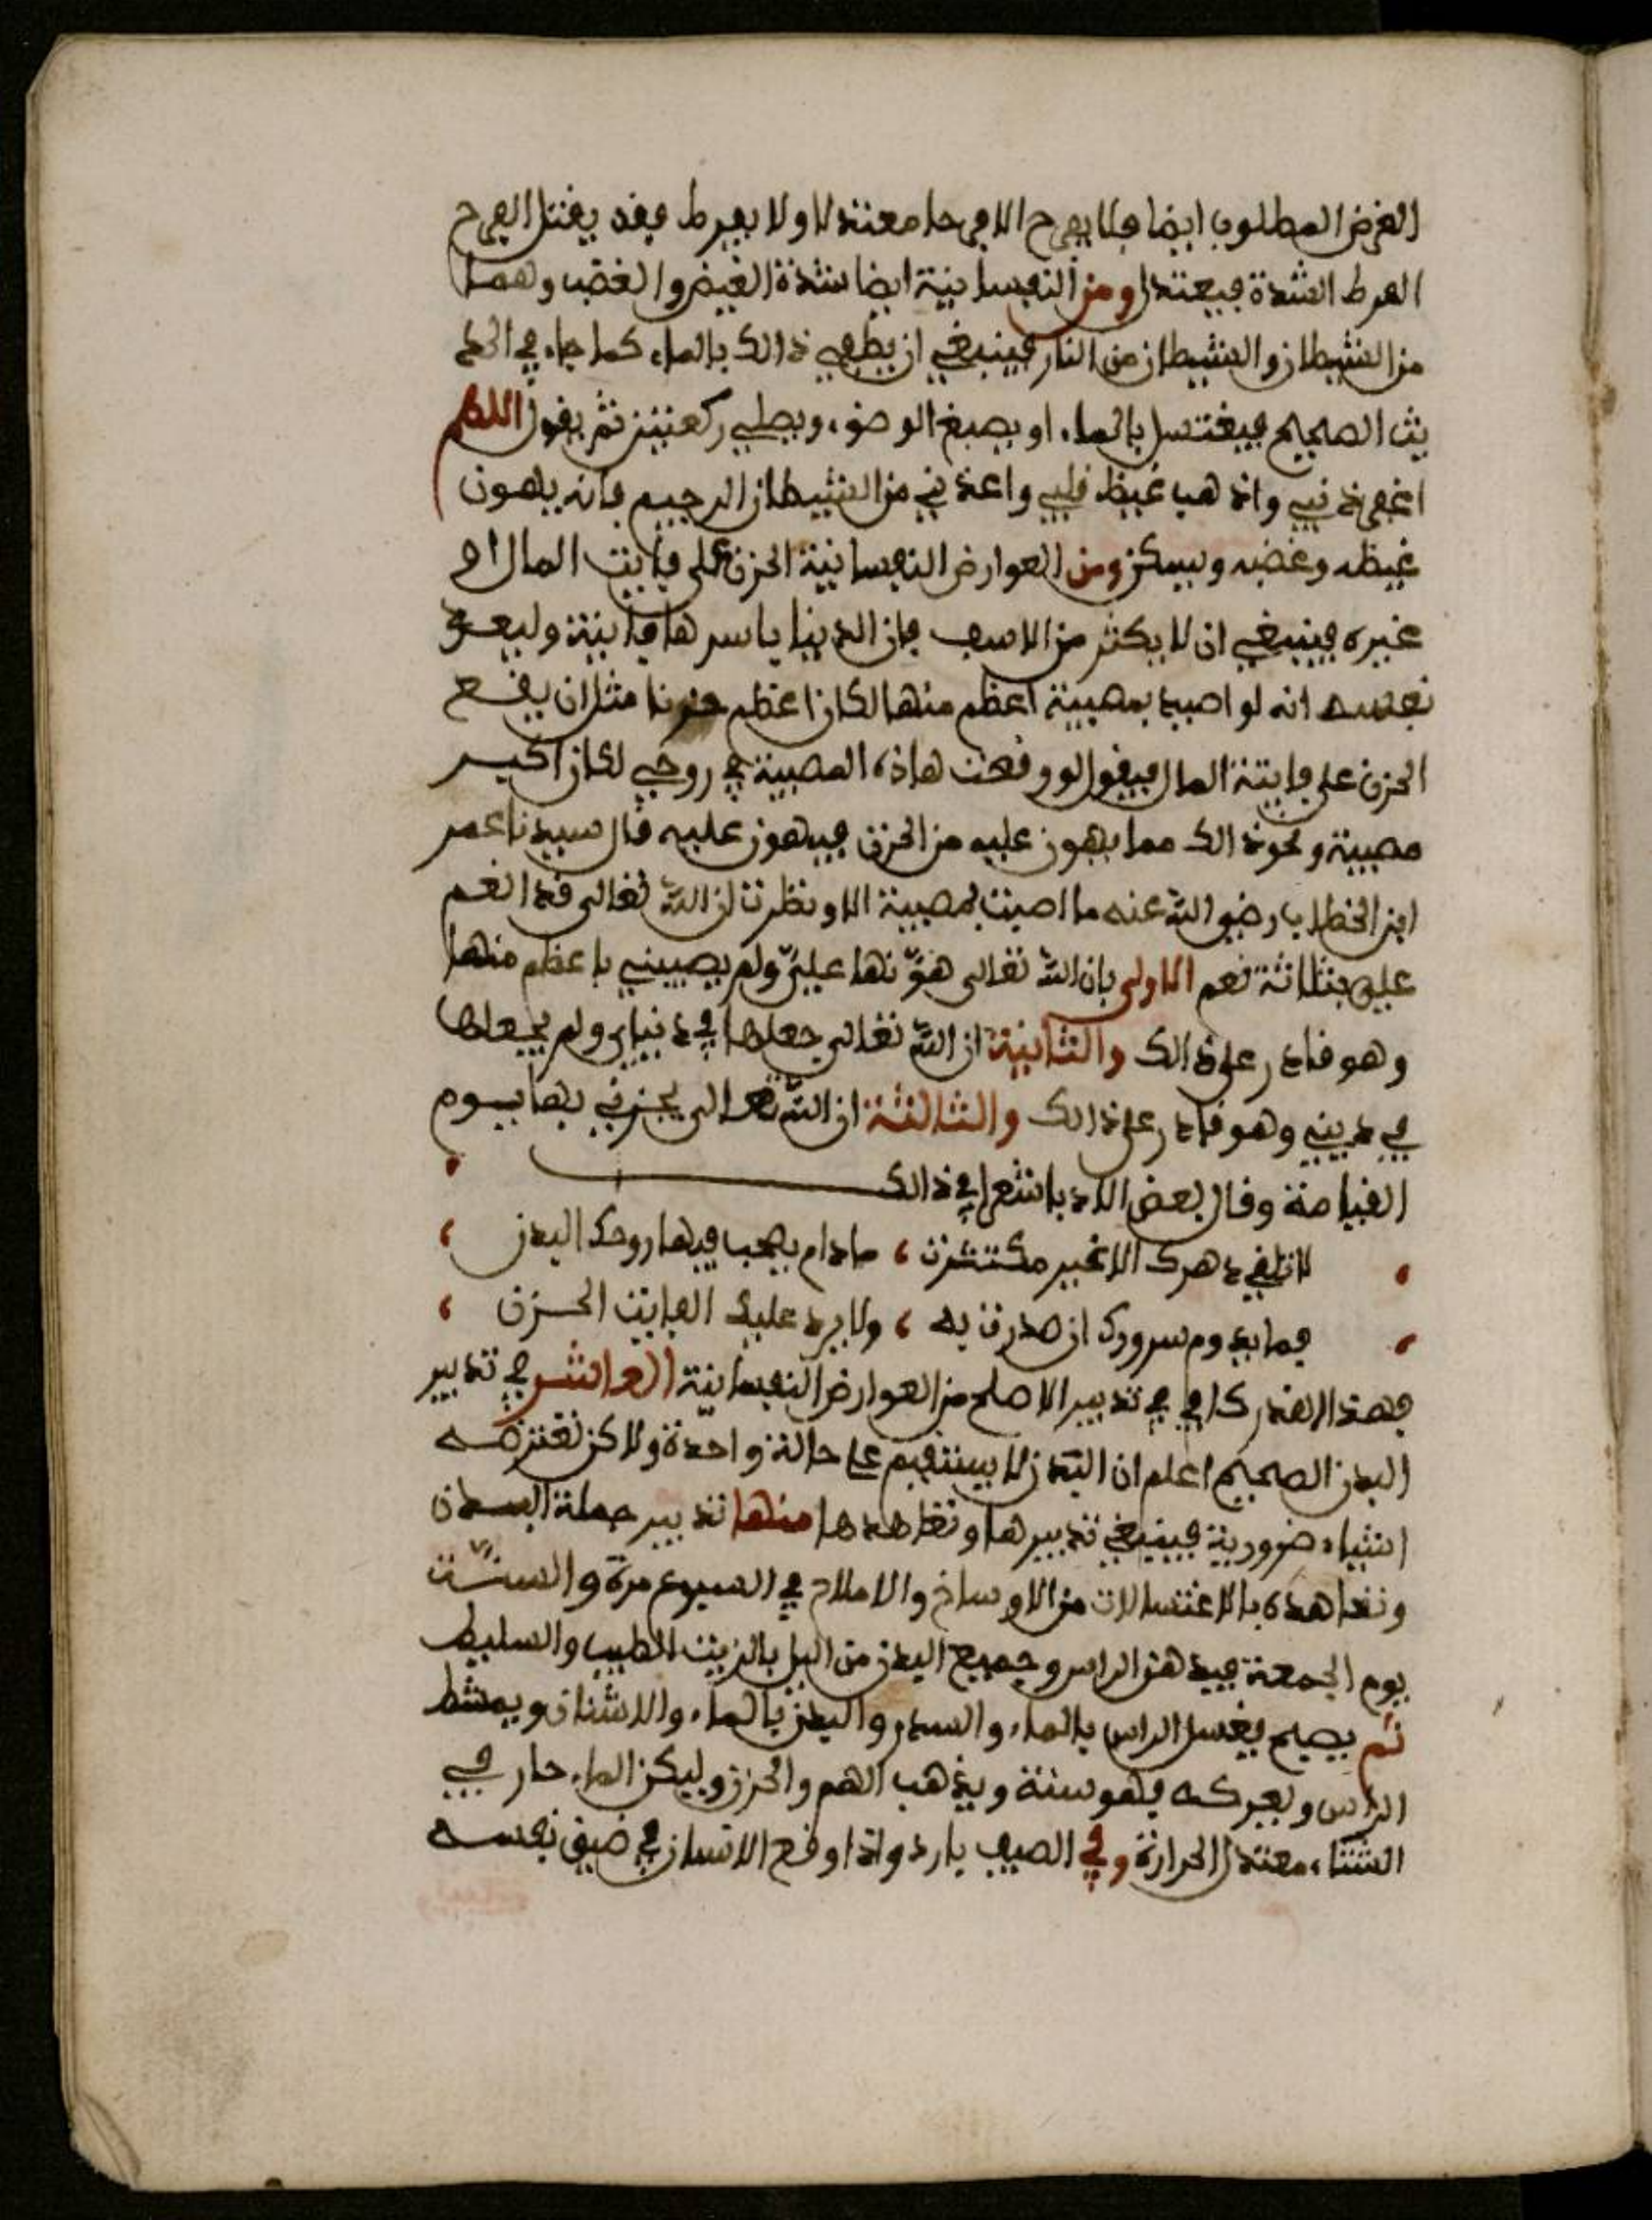 الغرض المطلوب ايضا فلا يفرح الا فرحا معتدلا ولا يفرط فقد يقتل الفرح
المفرط الشدة فيعتدل ومن النفسانية ايضا شدة الغيض والغضب وهما
من الشيطان والشيطان من النار فينبغي ان يطفي ذالك بالماء كما جاء في الحد
يث الصحيح فيغتسل بالماء او يصبغ الوضوء ويصلي ركعتين ثم يقول اللهم
اغفر ذنبي واذهب غيظ قلبي واعذني من الشيطان الرجيم فانه يهون
غيظه وغضبه ويسكن ومن العوارض النفسانية الحزن على فايت المال او
غيره فينبغي ان لا يكثر من الاسف فان الدنيا باسرها فانية وليعز
نفسه انه لو اصيب بمصيبة اعظم منها لكان اعظم حزنا مثل ان يقع
الحزن على فايتة المال فيقول لو وقعت هاذه المصيبة في روحي لكان اكبر
مصيبة ونحو ذالك مما يهون عليه من الحزن فيهون عليه قال سيدنا عمر
ابن الخطاب رضي الله عنه ما اصبت بمصيبة الا ونظرت ان الله تعالى قد انعم
علي بثلاثة نعم الاولى بان الله تعالى هوّنها عليّ ولم يصيبني باعظم منها
وهو قادر على ذالك والثانية ان الله تعالى جعلها في دنياي ولم يجعلها
في ديني وهو قادر على ذالك والثالثة ان الله تعالى يجزيني بها يوم
القيامة وقال بعض الادبا شعرا في ذالك
لا تلق دهرك الا غير مكتثرت ، مادام يصحب فيها روحك البدن ،
فما يدوم سرورك ان صدرت به ، ولا يرد عليك الفايت الحزن ،
فهذا القدر كاف في تدبير الاصلح من العوارض النفسانية العاشر في تدبير
البدن الصحيح اعلم ان البدن لا يستقيم على حالة واحدة ولاكن تعتريه
اشياء ضرورية فينبغي تدبيرها وتعاهدها منها تدبير جملة البدن
وتعاهده بالاغتسالات من الاوساخ والاملاح في السبوع مرة والسنّت
يوم الجمعة فيدهن الراس وجميع البدن من اليل بالزيت الطيب والسليط
ثم يصبح يغسل الراس بالماء والسدر والبدن بالماء والاشنان ويمشط
الراس ويفركه فهو سنة ويذهب الهم والحزن وليكن الماء حار في
الشتاء معتدل الحرارة وفي الصيف بارد واذا وقع الانسان في ضيق نفسه